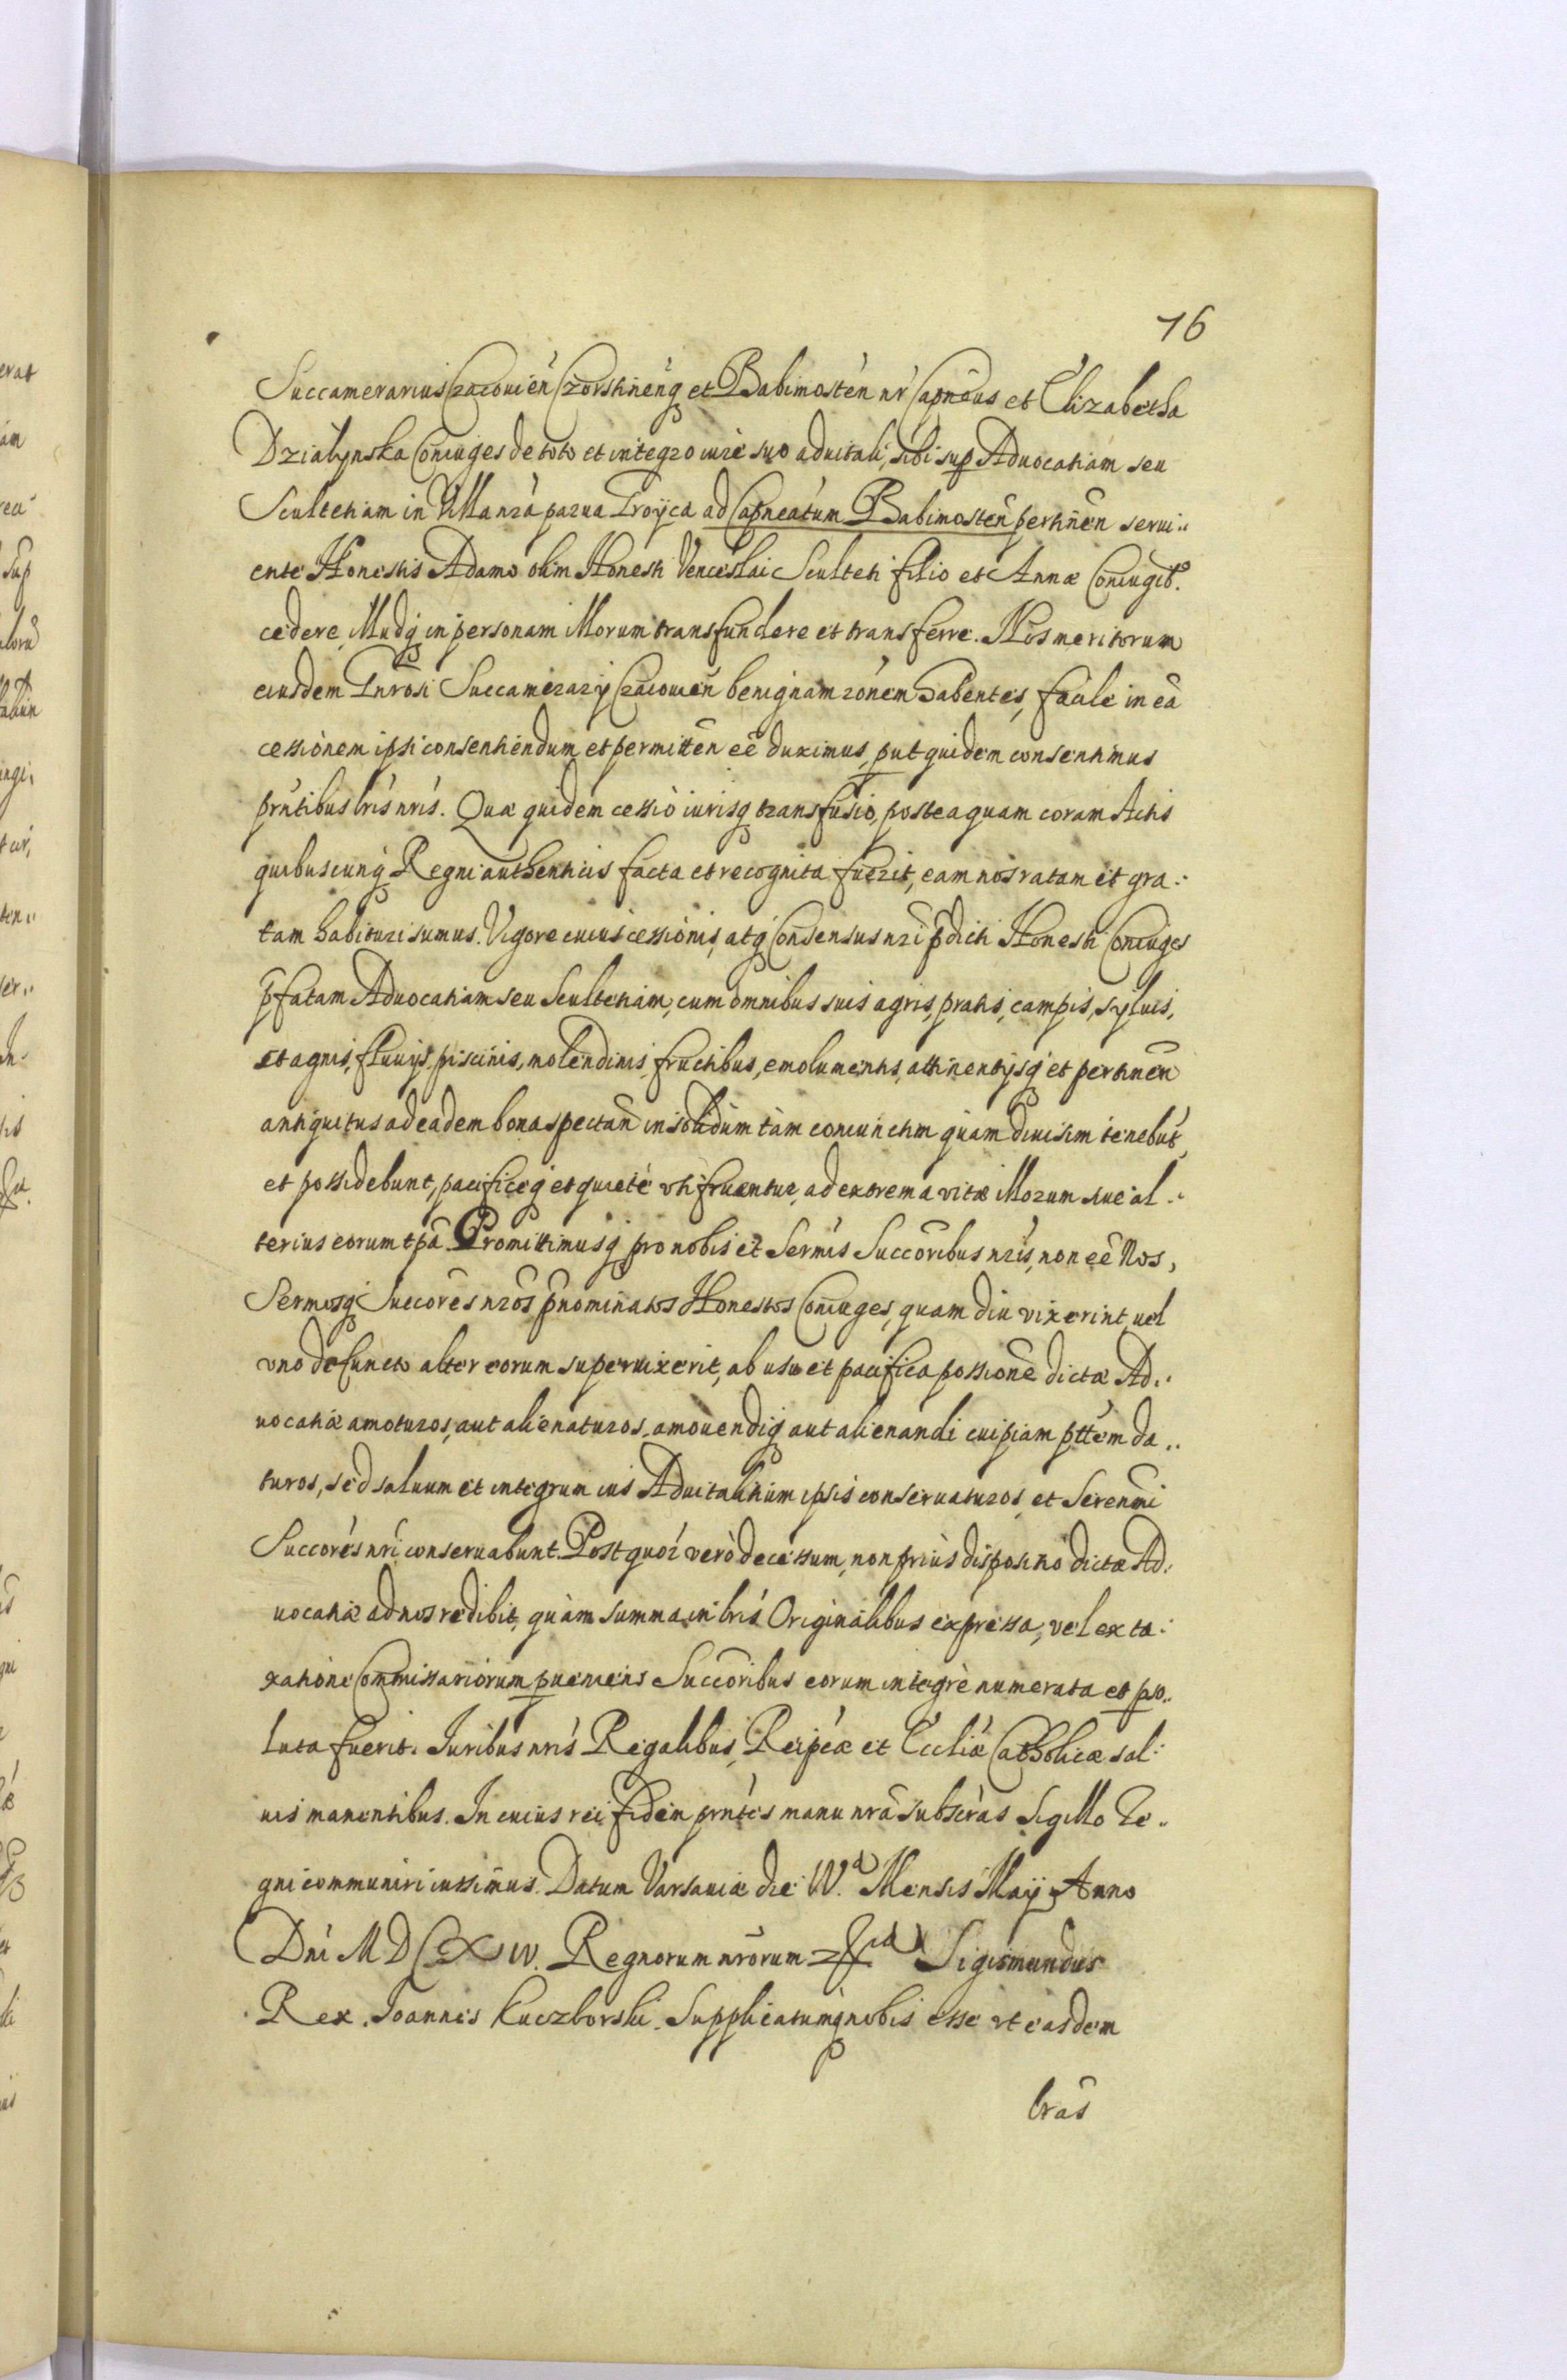 76
Succamerarius Cracouień Czorstineńq et Babimosteń nr̄ Capneus et Elizabetha
Dzialynska Coniuges de toto et integro iure suo aduitali, sibi sup Aduocatiam seu
Scultetiam in Villa nrā parua Troyca ad Capneatum Babimosteń pertineń serui„
ente Honestis Adamo olim Honesti Venceslai Sculteti filio et Annæ Coniugib9.
cedere, Illudq in personam Illorum transfundere et transferre. Nos meritorum
eiusdem Gnrosi Succamerarij Cracouień benignam rōnem habentes, facile in eā
cessionem ipsi consentiendum et permitteń eē duximus, put quidem consentimus
prn̄tibus lris nris. Quæ quidem cessio iurisq transfusio, postea quam coram Actis
quibuscunq Regni authenticis facta et recognita fuerit, eam nos ratam et gra„
tam habituri sumus. Vigore cuius cessionis, atq Consensus nri p̄dicti Honesti Coniuges
p̄fatam Aduocatiam seu Scultetiam, cum omnibus suis agris, pratis, campis, syluis,
stagnis, fluuijs, piscinis, molendinis, fructibus, emolumentis, attinentijsq et pertineń
antiquitus ad eadem bona spectań in solidum tàm coniunctim quam diuisim tenebūt,
et possidebunt, pacificeq et quietè vti fruentur, ad extrema vitæ Illorum siue al„
terius eorum tpā. Promittimusq pro nobis et Sermis Succoribus nris, non eē Nos,
Sermosq Succores nros p̄nominatos Honestos Coniuges, quam diu vixerint, uel
vno defuncto alter eorum superuixerit, ab usu et pacifica possione dictæ Ad„
uocatiæ amoturos, aut alienaturos, amouendiq aut alienandi cuipiam pttēm da„
turos, sed saluum et integrum ius Aduitalitium ipsis conseruaturos, et Serenmi
Succores nri conseruabunt. Post quor̄ verò decessum, non priùs dispositio dictæ Ad„
uocatiæ ad nos redibit, quàm summa in lris Originalibus expressa, vel ex ta„
xatione Commissariorum pueniens Succoribus eorum integrè numerata et pso„
luta fuerit. Iuribus nris Regalibus, Reipcæ et Eccliæ Catholicæ sal„
uis manentibus. In cuius rei fidem prn̄tes manu nrā subscras Sigillo Re„
gni communiri iussimus. Datum Varsauiæ die IV.a Mensis Maij Anno
Dni M D C X IV. Regnorum nrorum Sigismundus
Rex. Ioannes Kuczborski. Supplicatumq nobis esse vt easdem
lrās